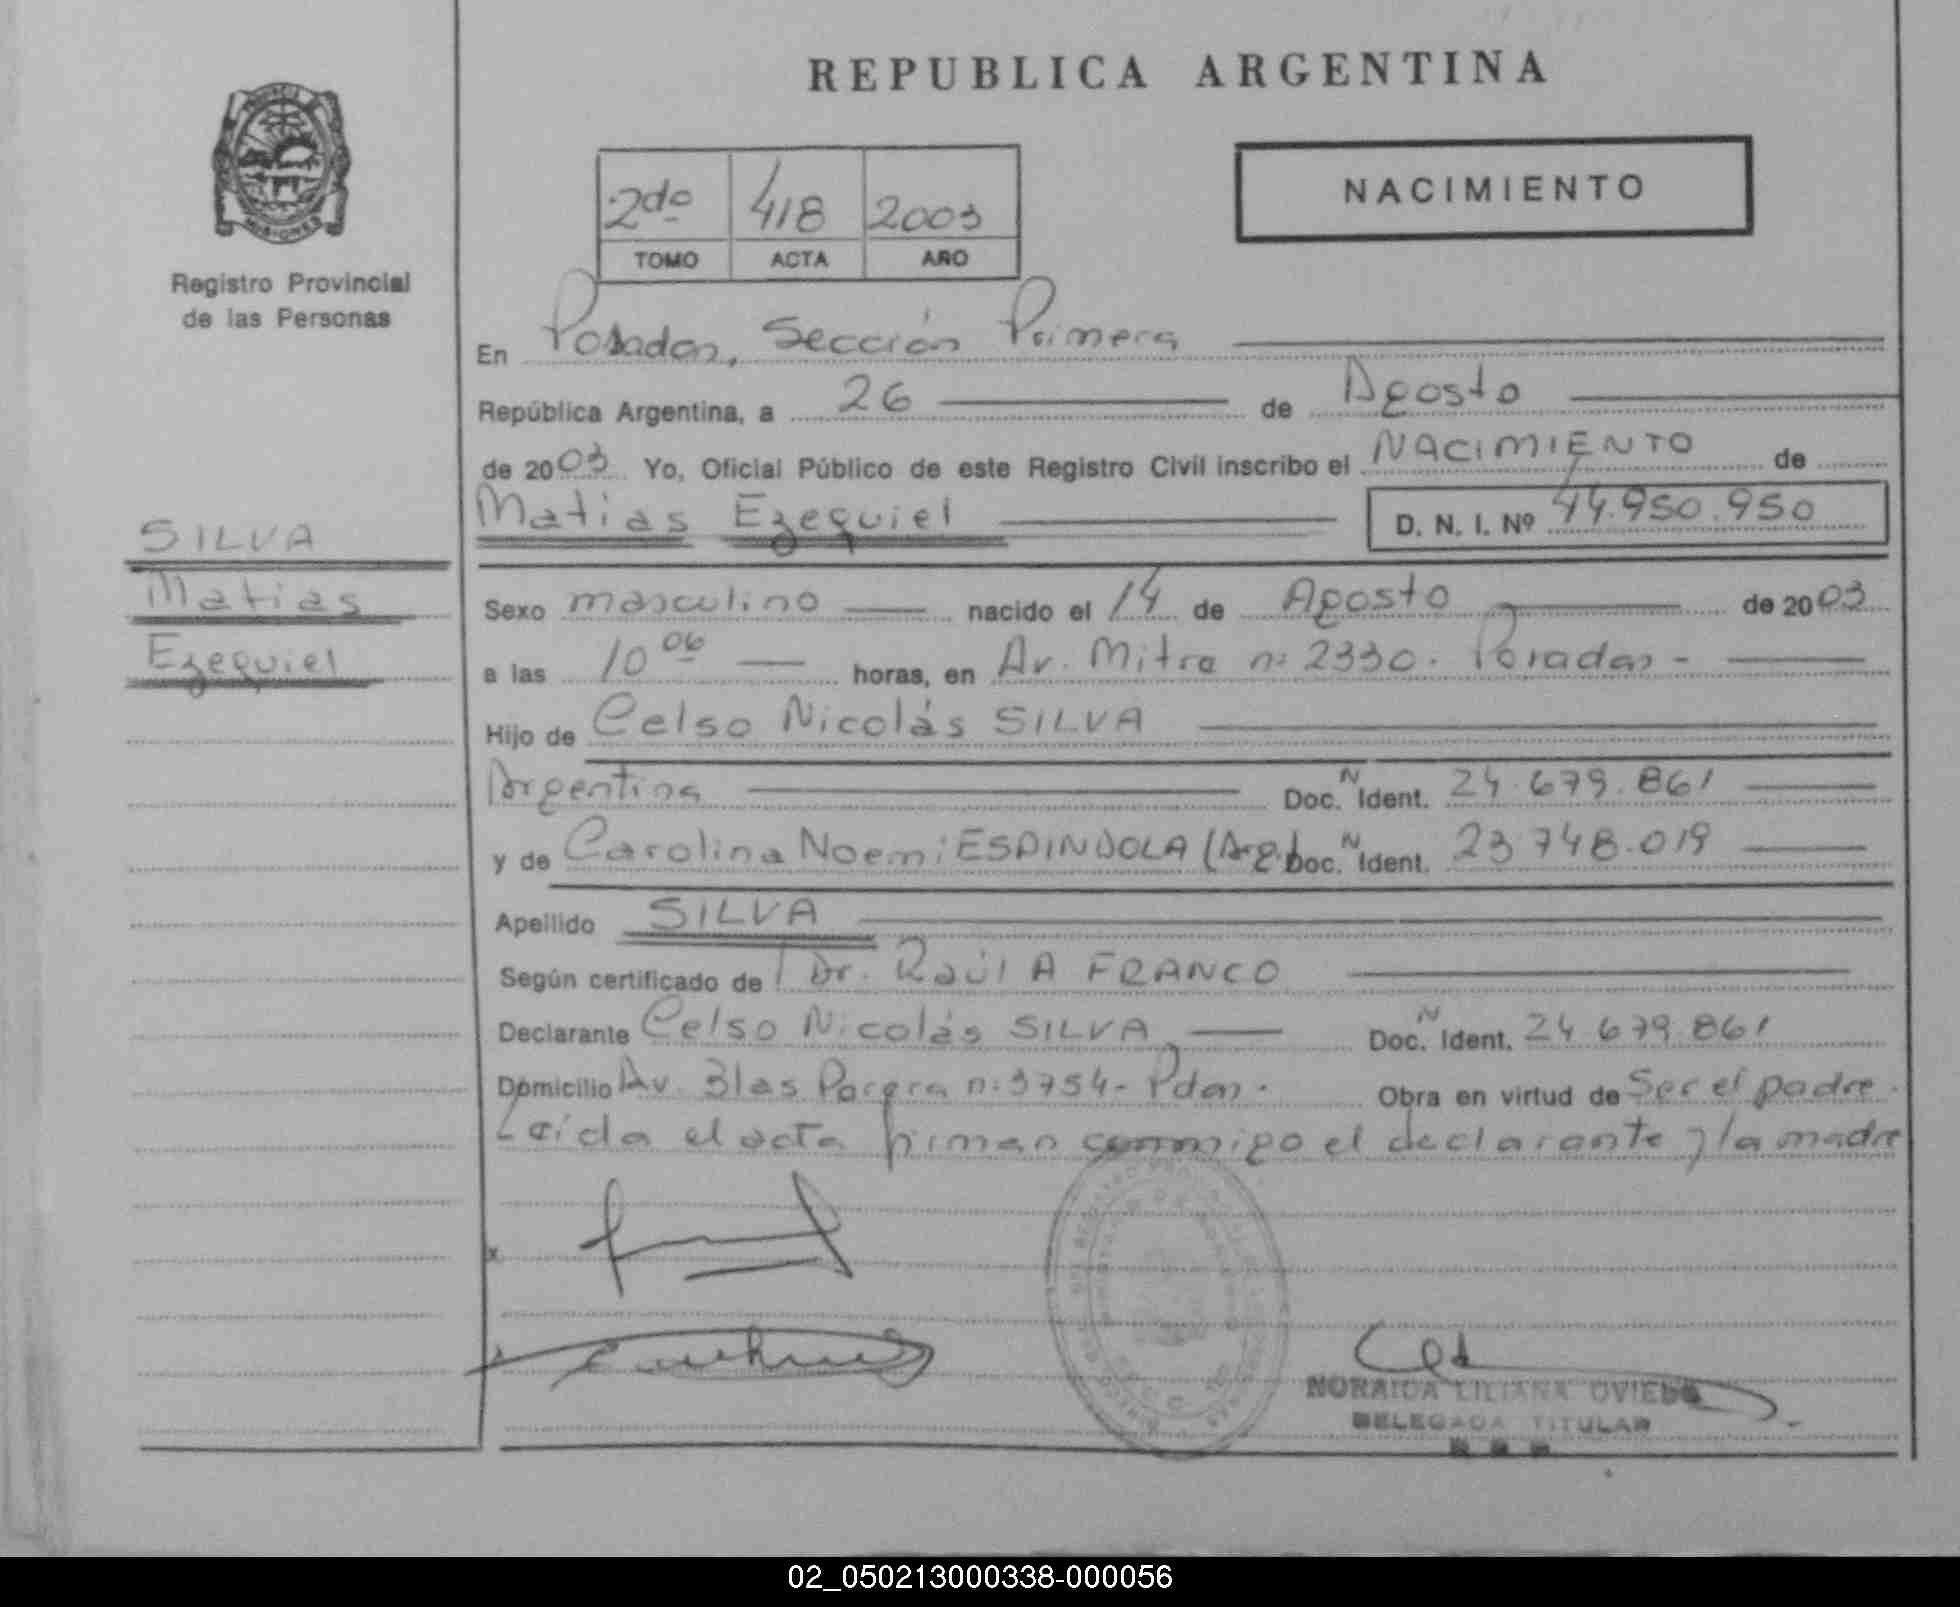 REPUBLICA ARGENTINA
2do 418 2003
TOMO ACTA AÑO
NACIMIENTO
PROVINCIA
MISIONES
Registro Provincial
de las Personas
En Posadas, Sección Primera
República Argentina, a 26 de Agosto
de 2003 Yo, Oficial Público de este Registro Civil inscribo el NACIMIENTO de
Matias Ezequiel D. N. I. Nº 44.950.950
SILVA
Matias
Ezequiel
Sexo masculino nacido el 14 de Agosto de 2003
a las 10 06 horas, en Av. Mitre nº 2330. Posadas -
Hijo de Celso Nicolás SILVA
Argentina Doc. N Ident. 24.679.861
y de Carolina Noemi ESPINDOLA (Arg.) Doc. N Ident. 23.748.019
Apellido SILVA
Según certificado de Dr. Raúl A FRANCO
Declarante Celso Nicolás SILVA Doc. N Ident. 24.679.861
Domicilio Av. Blas Parera nº 3754- Pdas. Obra en virtud de Ser el padre.
Leída el acta firman conmigo el declarante y la madre
x
NORAIDA LILIANA OVIEDO
DELEGADA TITULAR
02_050213000338-000056